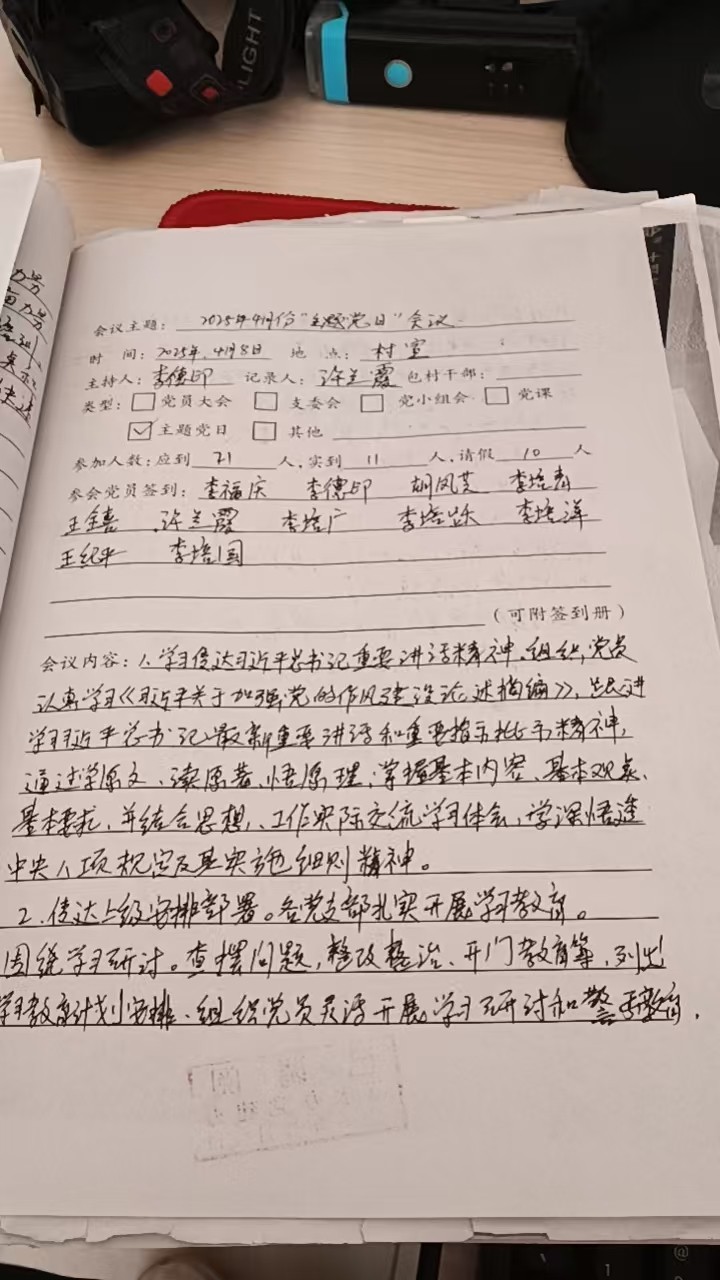 LIGHT
会议主题：2025年4月份“主题党日”会议
时 间：2025年.4月8日 地 点：村室
主持人：李德印 记录人：许兰霞 包村干部：
类型：□党员大会 □支委会 □党小组会 □党课
☑主题党日 □其他
参加人数：应到 21 人，实到 11 人，请假 10 人
参会党员签到：李福庆 李德印 胡凤芝 李培
王金喜 许兰霞 李培广 李培 李培洋
王纪平 李培国
（可附签到册）
会议内容：1、学习传达习近平总书记重要讲话精神。组织党员
认真学习《习近平关于加强党的作风建设论述摘编》，跟进
学习习近平总书记最新重要讲话和重要指示批示精神，
通过学原文、读原著、悟原理，掌握基本内容、基本观点、
基本要求，并结合思想、工作实际交流学习体会，学深悟透
中央八项规定及其实施细则精神。
2、传达上级安排部署。各党支部扎实开展学习教育。
围绕学习研讨。查摆问题，整改整治、开门教育等，列出
学习教育计划安排、组织党员灵活开展学习研讨和警示教育，